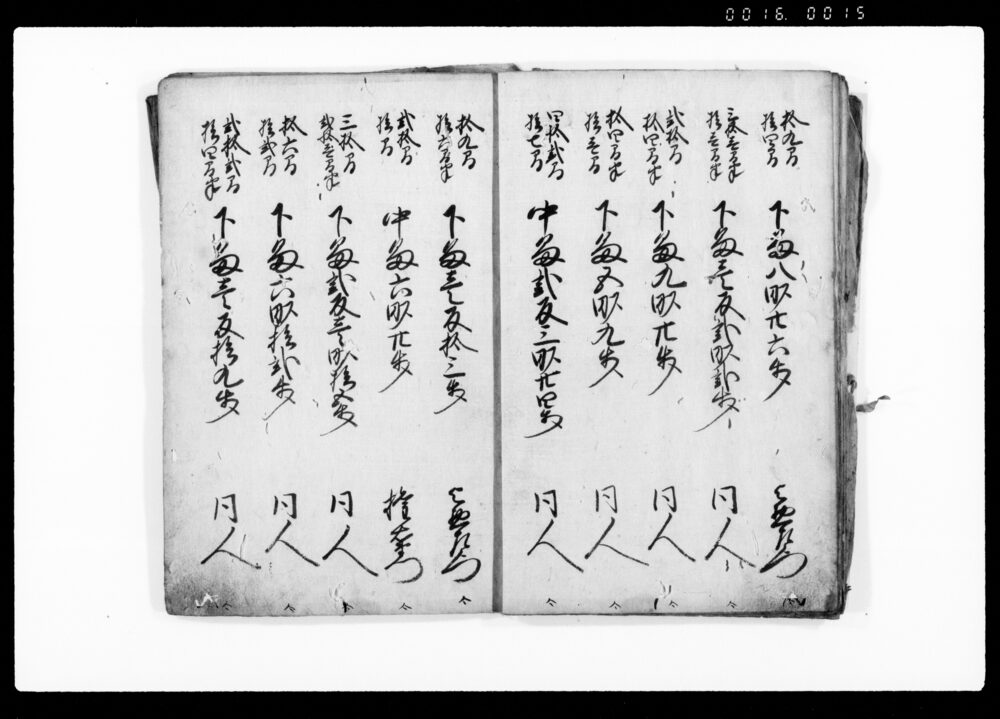 0016. 0015
拾九間
拾四間
下畠八畝廿六歩
三拾壱間半
拾壱間半
下畠壱反弐畝弐歩
同人
弐拾間
拾四間半
下畠九畝廿歩
同人
拾四間半
拾壱間
下畠五畝九歩
同人
四拾弐間
拾七間
中畠弐反三畝廿四歩
同人
拾九間
拾六間半
下畠壱反拾三歩
弐拾間
拾間
中畠六畝廿歩
三拾間
弐拾三間半
下畠弐反三畝拾五歩
同人
拾六間
拾弐間
下畠六畝拾弐歩
同人
弐拾弐間
拾四間半
下畠壱反拾九歩
同人